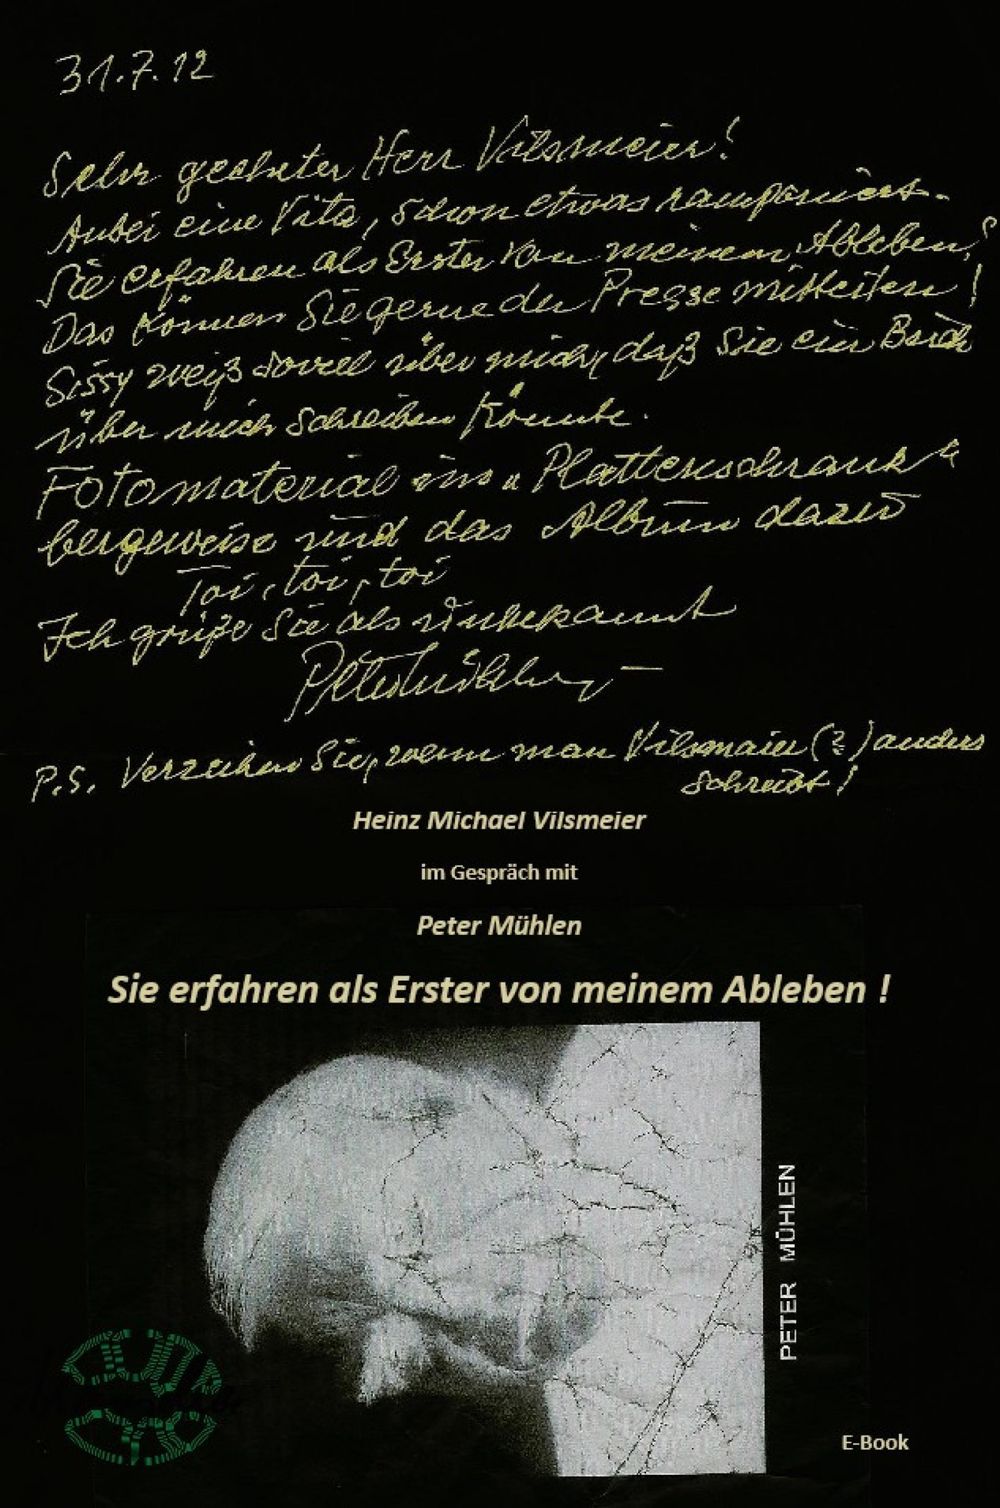 31.7.12
Sehr geehrter Herr Vilsmeier!
Anbei eine Vita, schon etwas ramponiert.
Sie erfahren als Erster von meinem Ableben!
Das können Sie gerne der Presse mitteilen!
Sissy weiß soviel über mich, daß Sie ein Buch
über mich schreiben könnte.
Fotomaterial ins „Plattenschrank“
bergeweise und das Album dazu
Toi, toi, toi
Ich grüße Sie als unbekannt
Peter Mühlen
P.S. Verzeihen Sie, wenn man Vilsmaier (?) anders
schreibt!
Heinz Michael Vilsmeier
im Gespräch mit
Peter Mühlen
Sie erfahren als Erster von meinem Ableben !
PETER MÜHLEN
E-Book